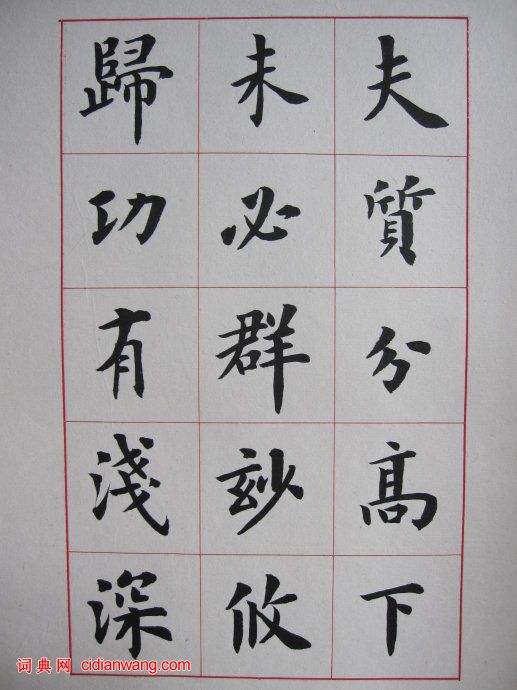 夫質分高下
未必群玅攸
歸功有淺深
词典网 cidianwang.com